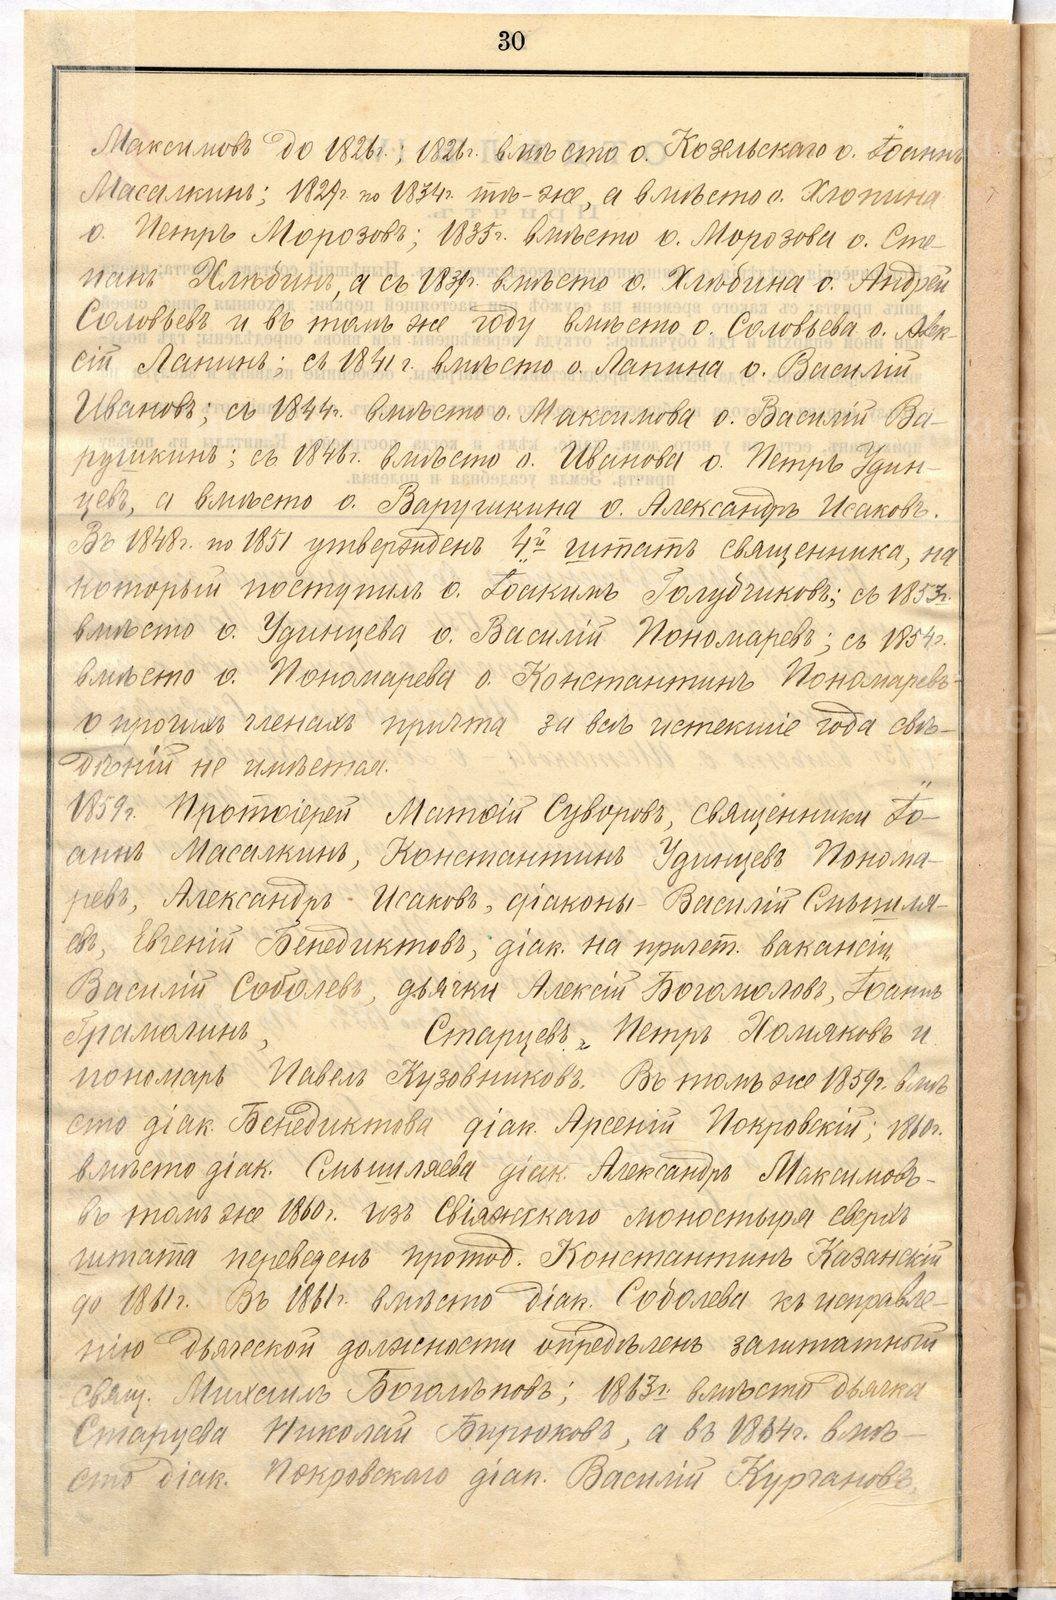 30
Максимовъ до 1826г.; 1826г. вмѣсто о. Козельскаго о. Іоаннъ
Масалкинъ; 1829г. по 1834г. тѣ-же, а вмѣсто о. Хлопина
о. Петръ Морозовъ; 1835г. вмѣсто о. Морозова о. Сте-
панъ Хлѣбинъ, а съ 1837г. вмѣсто о. Хлѣбина о. Андрей
Соловьевъ и въ томъ же году вмѣсто о. Соловьева о. Алек-
сій Лапинъ; съ 1841 г. вмѣсто о. Лапина о. Василій
Ивановъ; съ 1844г. вмѣсто о. Максимова о. Василій Ва-
рушкинъ; съ 1846г. вмѣсто о. Иванова о. Петръ Удин-
цевъ, а вмѣсто о. Варушкина о. Александръ Исаковъ.
Въ 1848г. по 1851 утвержденъ 4й штатъ священника, на
который поступилъ о. Іоакимъ Голубчиковъ; съ 1853г.
вмѣсто о. Удинцева о. Василій Пономаревъ; съ 1854г.
вмѣсто о. Пономарева о. Константинъ Пономаревъ-
о прочихъ членахъ причта за всѣ истекшіе года свѣ-
дѣній не имѣется.
1859г. Протоіерей Матѳій Суворовъ, священники Іо-
аннъ Масалкинъ, Константинъ Удинцевъ Понома-
ревъ, Александръ Исаковъ, діаконы Василій Смышля-
евъ, Евгеній Бенедиктовъ, діак. на причет. вакансіи
Василій Соболевъ, дьячки Алексій Богомоловъ, Іоаннъ
Грамолинъ, Старцевъ, Петръ Хомяковъ и
пономарь Павелъ Кузовниковъ. Въ томъ же 1859г. вмѣ
сто діак. Бенедиктова діак. Арсеній Покровскій; 1860г.
вмѣсто діак. Смышляева діак. Александръ Максимовъ-
въ томъ же 1860г. изъ Свіяжскаго моностыря сверхъ
штата переведенъ протод. Константинъ Казанскій
до 1861г. Въ 1861г. вмѣсто діак. Соболева къ исправле-
нію дьяческой должности опредѣленъ заштатный
свящ. Михаилъ Боголѣповъ; 1863г. вмѣсто дьячка
Старцева Николай Бирюковъ, а въ 1864г. вмѣ-
сто діак. Покровскаго діак. Василій Кургановъ,